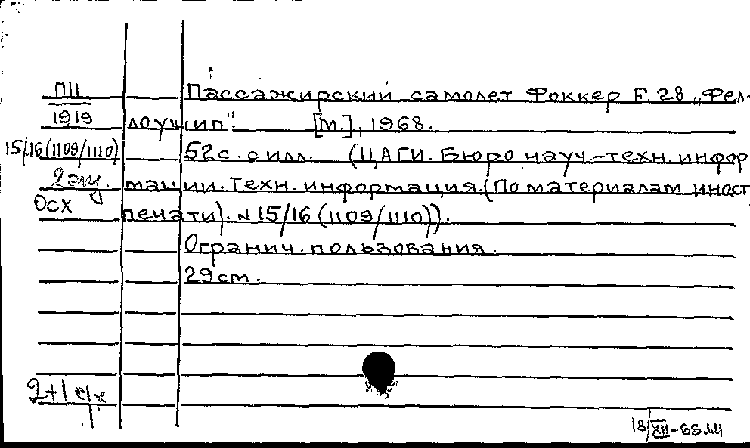 ПЦ
1919
15/16(1109/1110)
2 экз.
ОСХ
Пассажирский самолет Фоккер F. 28 "Фел-
лоушип". [М.], 1968.
52 с. с илл. (ЦАГИ. Бюро науч.-техн. инфор
мации. Техн. информация. (По материалам иност
печати). № 15/16 (1109/1110)).
Огранич. пользования.
29 см.
2+1
18/XII-68